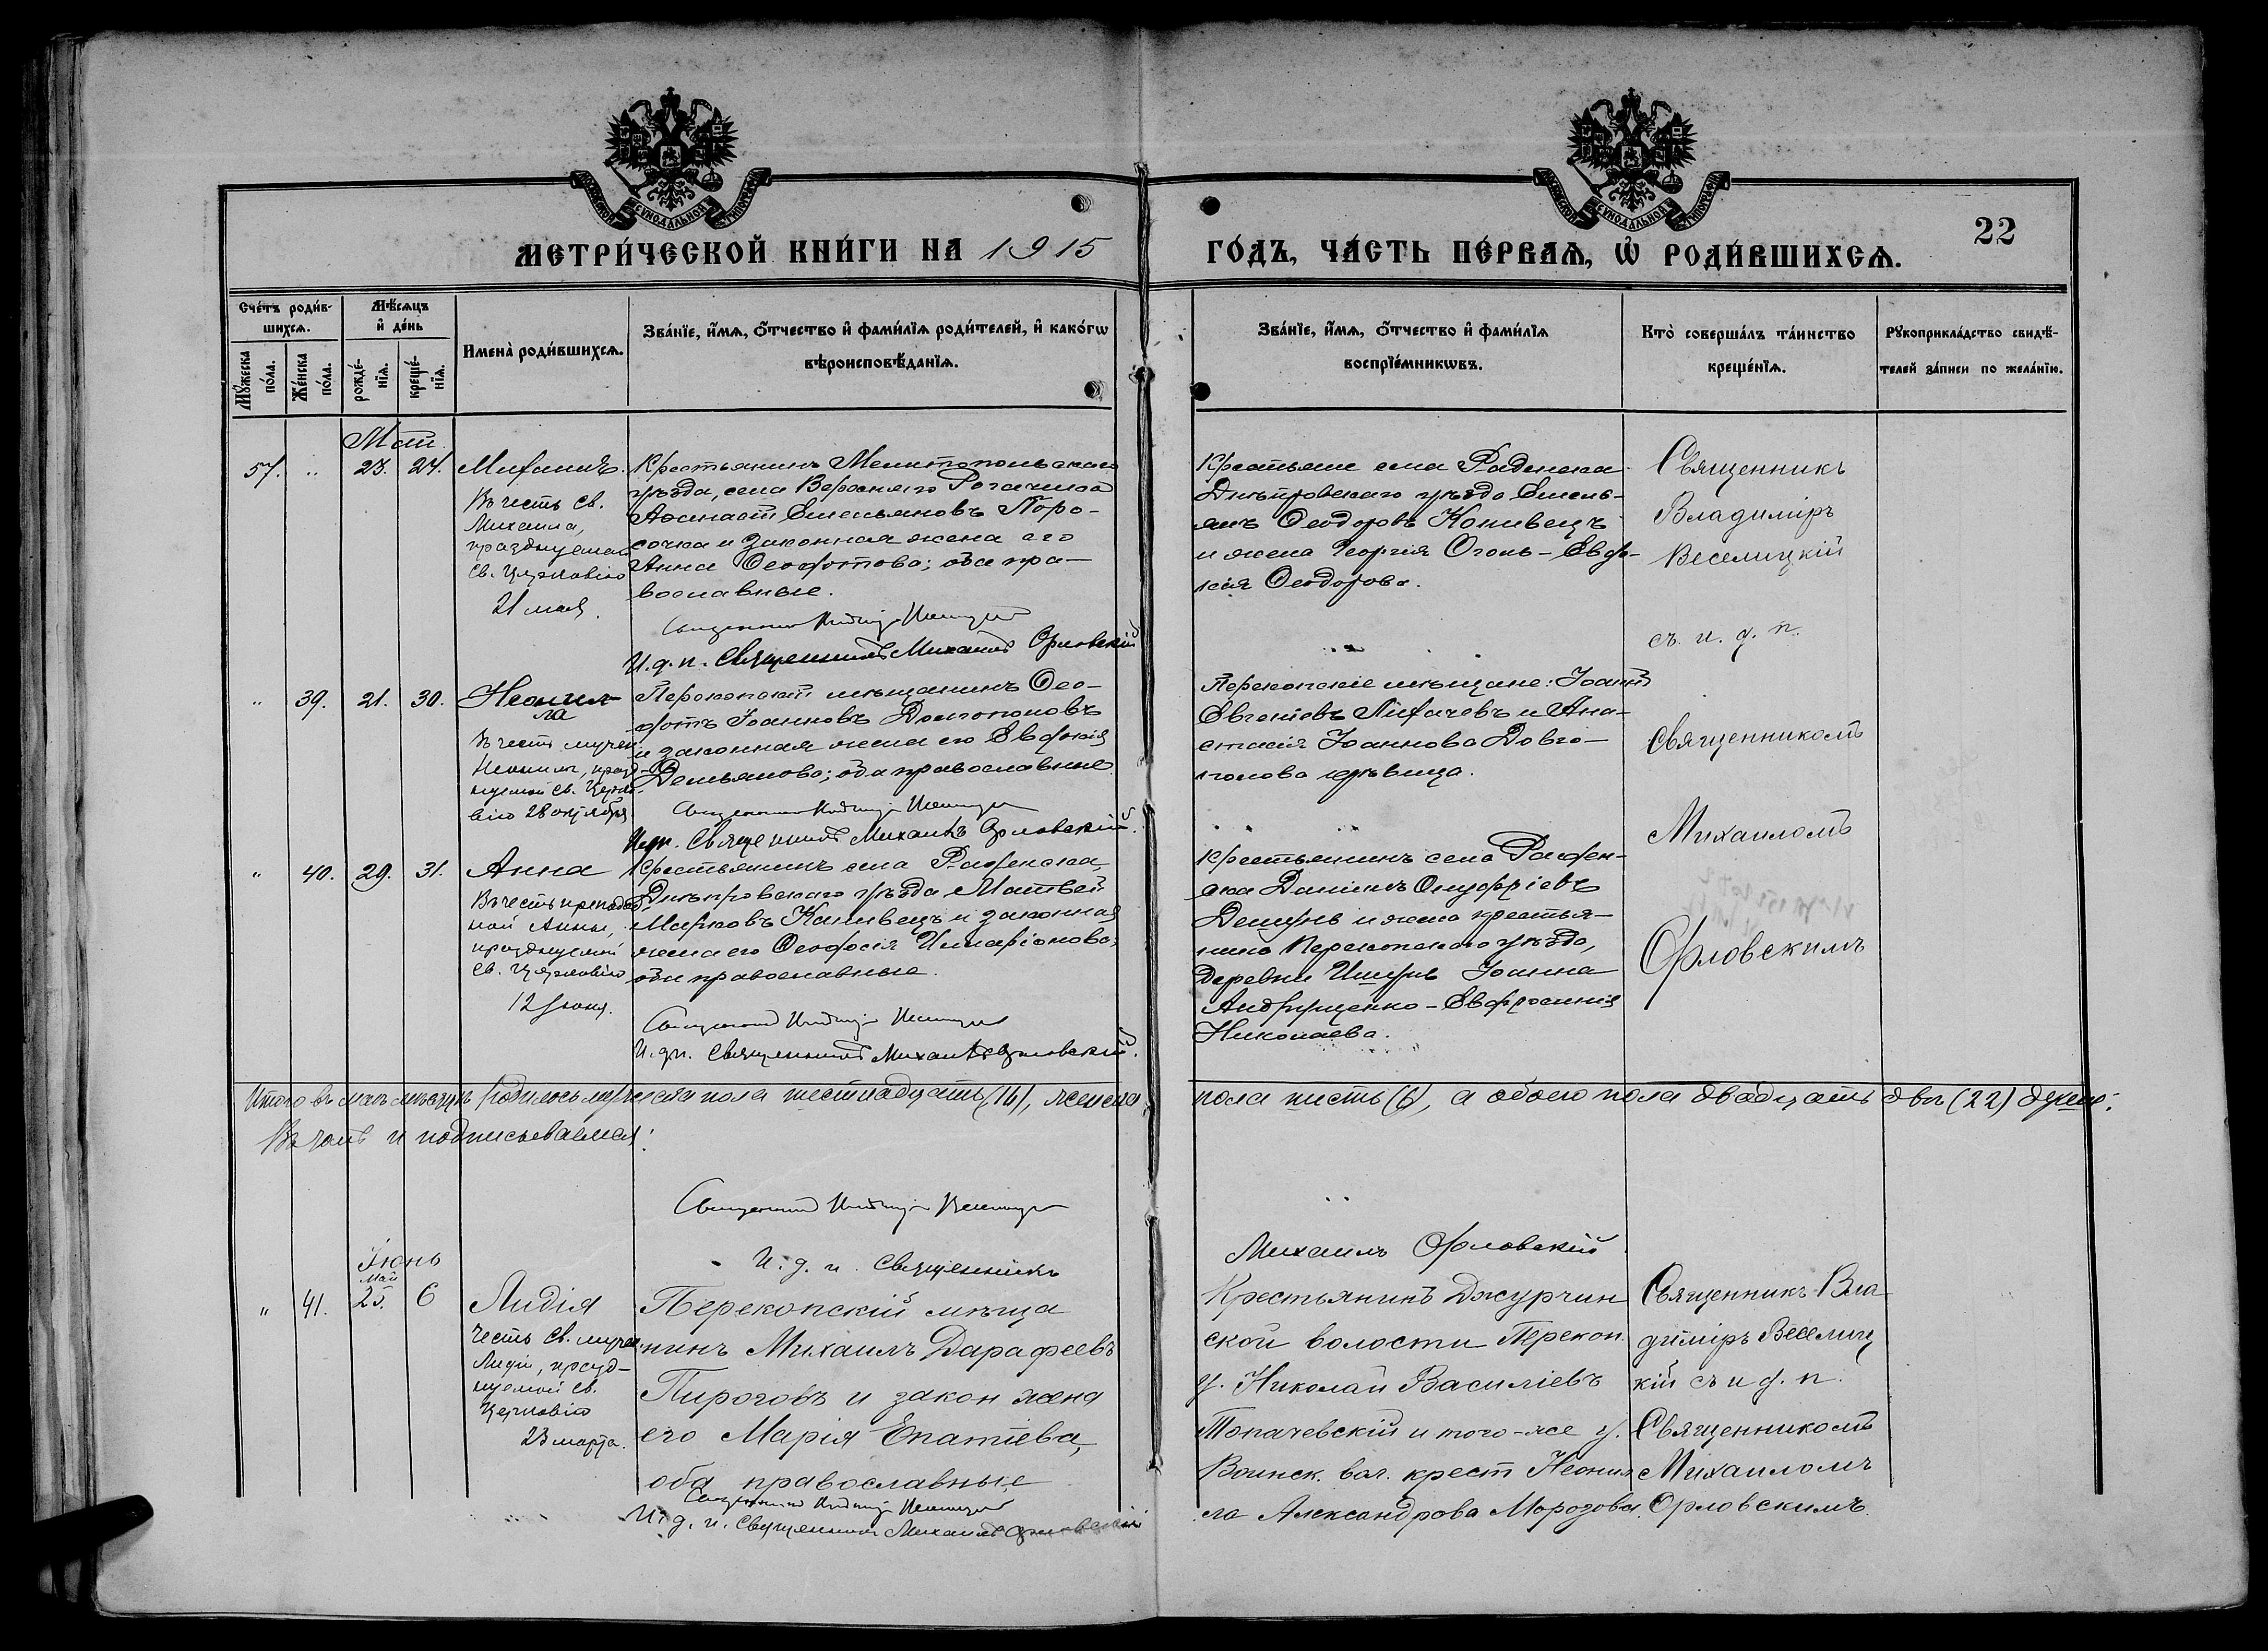 МОСКОВСКОЙ СУНОДАЛЬНОЙ ТИПОГРАФІИ
МОСКОВСКОЙ СУНОДАЛЬНОЙ ТИПОГРАФІИ
22
МЕТРИ́ЧЕСКОЙ КНИ́ГИ НА 1915
ГО́ДЪ, ЧА́СТЬ ПЕ́РВАѦ, Ѡ҆ РОДИ́ВШИХСѦ.
Сче́тъ роди́в-
шихсѧ.
Мꙋ́жеска
по́ла.
Же́нска
по́ла.
Мѣ́сѧцъ
и҆ де́нь
рожде́-
нїѧ.
креще́-
нїѧ.
Имена̀ роди́вшихсѧ.
Зва́нїе, и҆́мѧ, ѻ҆́тчество и҆ фами́лїѧ роди́телей, и҆ како́гѡ
вѣроисповѣ́данїѧ.
Зва́нїе, и҆́мѧ, ѻ҆́тчество и҆ фами́лїѧ
воспрїе́мникѡвъ.
Кто̀ соверша́лъ та́инство
креще́нїѧ.
Рꙋкоприкла́дство свидѣ́-
телей за́писи по жела́нїю.
Май
57. " 23. 24. Михаилъ.
Въ честь св.
Михаила,
празднуемаго
св. Церковію
21 мая.
Крестьянинъ Мелитопольскаго
уѣзда, села Верхняго Рогачика
Емельяновъ Поро-
сочка и законная жена его
Анна Ѳеофотова; оба пра-
вославные.
И. д. п. Священникъ Михаилъ Орловскій
Крестьяне села Раденска
Днѣпровскаго уѣзда Емель-
янъ Ѳеодоровъ Копивецъ
и жена Георгія Огонь - Евдо-
кія Ѳеодорова.
Священникъ
Владиміръ
Веселицкій
съ и. д. п.
" 39. 21. 30. Неонил-
ла
Въ честь мучен.
Неонилы, празд-
нуемой св. Церко-
вію 28 октября
Перекопскій мѣщанинъ Ѳео-
фотъ Іоанновъ Долгополовъ
и законная жена его Евдокія
Демьянова; оба православные
Священникъ Михаилъ Орловскій.
Перекопскіе мѣщане: Іоаннъ
Евгеніевъ Лихачевъ и Ана-
стасія Іоаннова Довго-
полова дѣвица.
Священникомъ
Михаиломъ
Орловскимъ
" 40. 29. 31. Анна
Въ честь преподоб-
ной Анны,
празднуемой
св. Церковію
12 Іюня.
Крестьянинъ села Раденска,
Днѣпровскаго уѣзда Матвей
Марковъ Копивецъ и законная
жена его Ѳеодосія Иларіонова;
оба православные.
И. д. п. Священникъ Михаилъ Орловскій.
Крестьянинъ села Раден-
ска Даніилъ Онуфріевъ
и жена крестья-
нина Перекопскаго уѣзда,
деревни Ишунь Іоанна
Андрущенко - Евфросинія
Николаева.
Итого въ маѣ мѣсяцѣ родилось мужеска пола шестнадцать (16), женска
пола шесть (6), а обоего пола двадцать два (22) душъ:
Въ чемъ и подписываемся:
И. д. п. Священникъ
Михаилъ Орловскій
Іюнь
" 41. май 25. 6 Лидія
Честь св. мучен.
Лидіи, празд-
нуемой св.
Церковію
23 марта.
Перекопскій мѣща
нинъ Михаилъ Дарафеевъ
Пироговъ и закон жена
его Марія Епатіева,
оба православные
И. д. п. Священникъ Михаилъ Орловскій
Крестьянинъ Джурчин
ской волости Перекоп.
у. Николай Василіевъ
Топачевскій и того-же у.
Воинск. вол. крест Неонил
ла Александрова Морозова.
Священникъ Вла
диміръ Веселиц
кій съ и д. п.
Священникомъ
Михаиломъ
Орловскимъ.